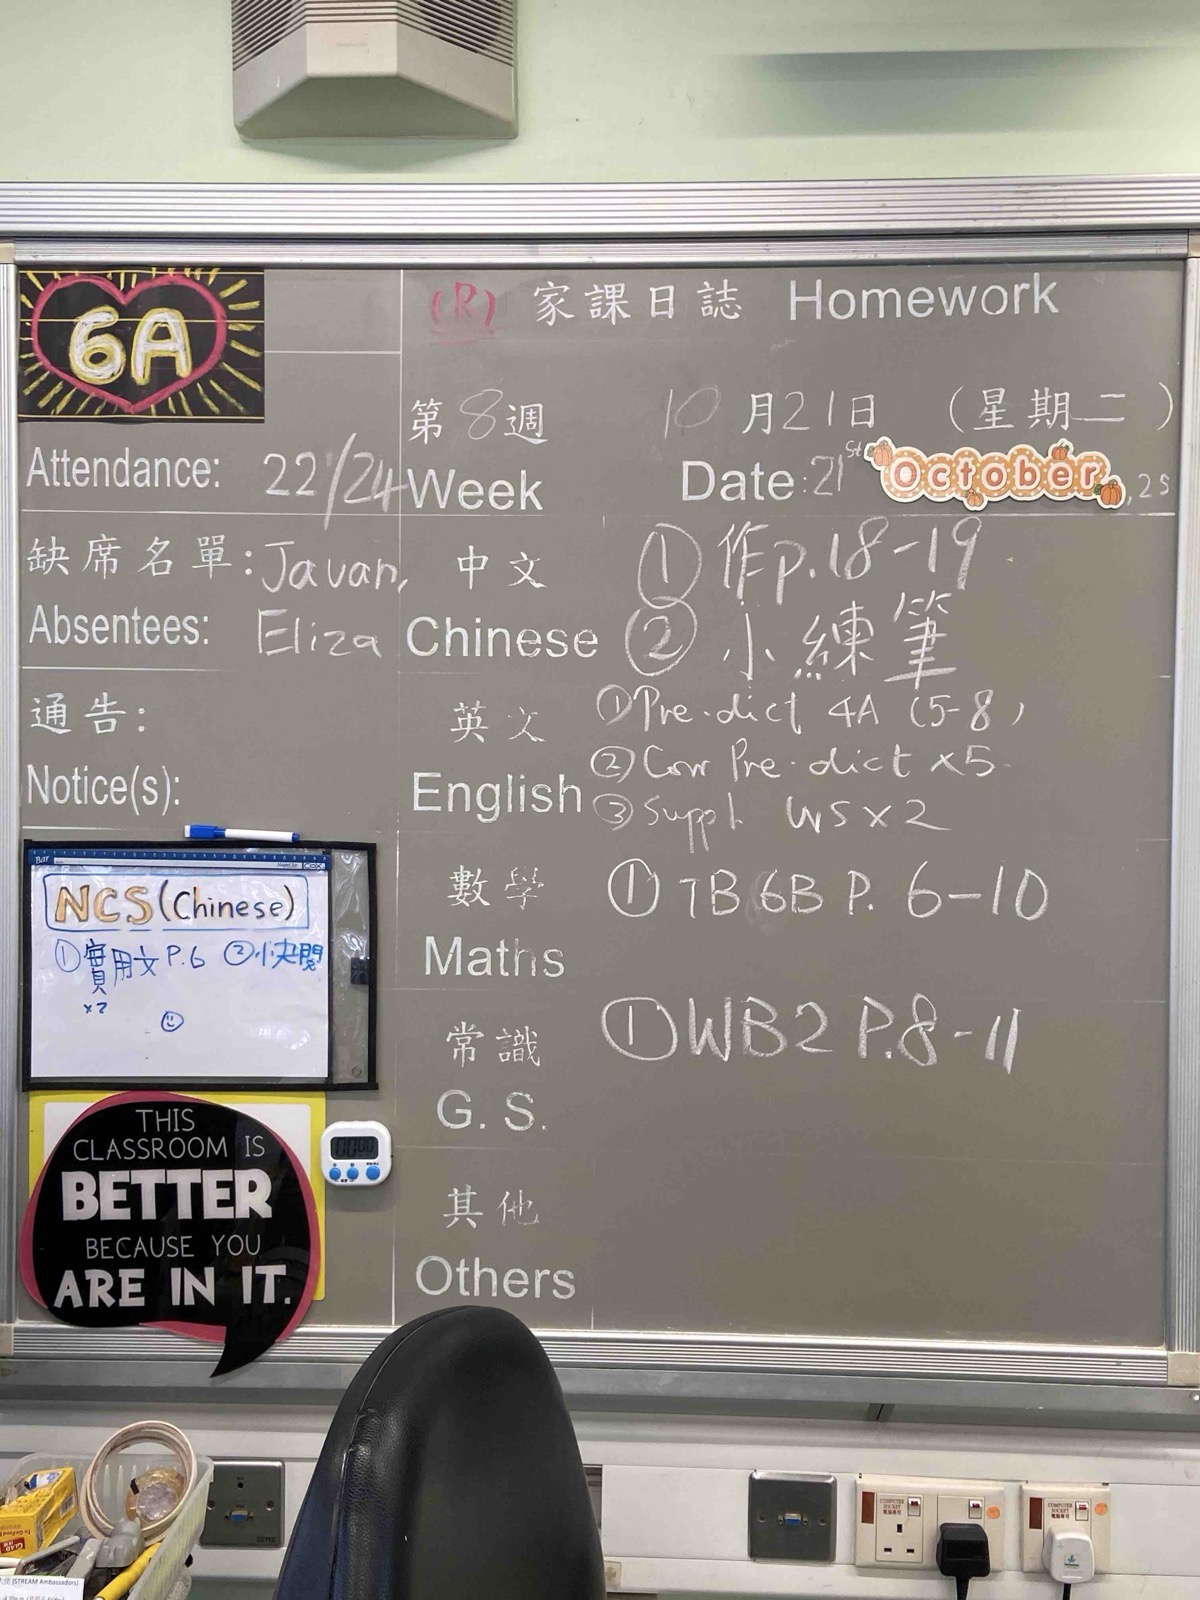 6A
(R) 家課日誌 Homework
第8週 10月21日 (星期二)
Week Date: 21st October, 25
Attendance: 22/24
缺席名單: Javan,
Absentees: Eliza
通告:
Notice(s):
中文 ① 作p.18-19
Chinese ② 小練筆
英文 ① Pre-dict 4A (5-8)
② Corr Pre-dict x5
English ③ Suppl. WS x2
數學 ① 7B 6B P. 6-10
Maths
常識 ① WB2 P.8-11
G. S.
其他
Others
Bar
NCS (Chinese)
① 實用文 P.6 ② 小
x2
THIS
CLASSROOM IS
BETTER
BECAUSE YOU
ARE IN IT.
COMPUTER SOCKET
COMPUTER SOCKET
GLAD
(STREAM Ambassadors)